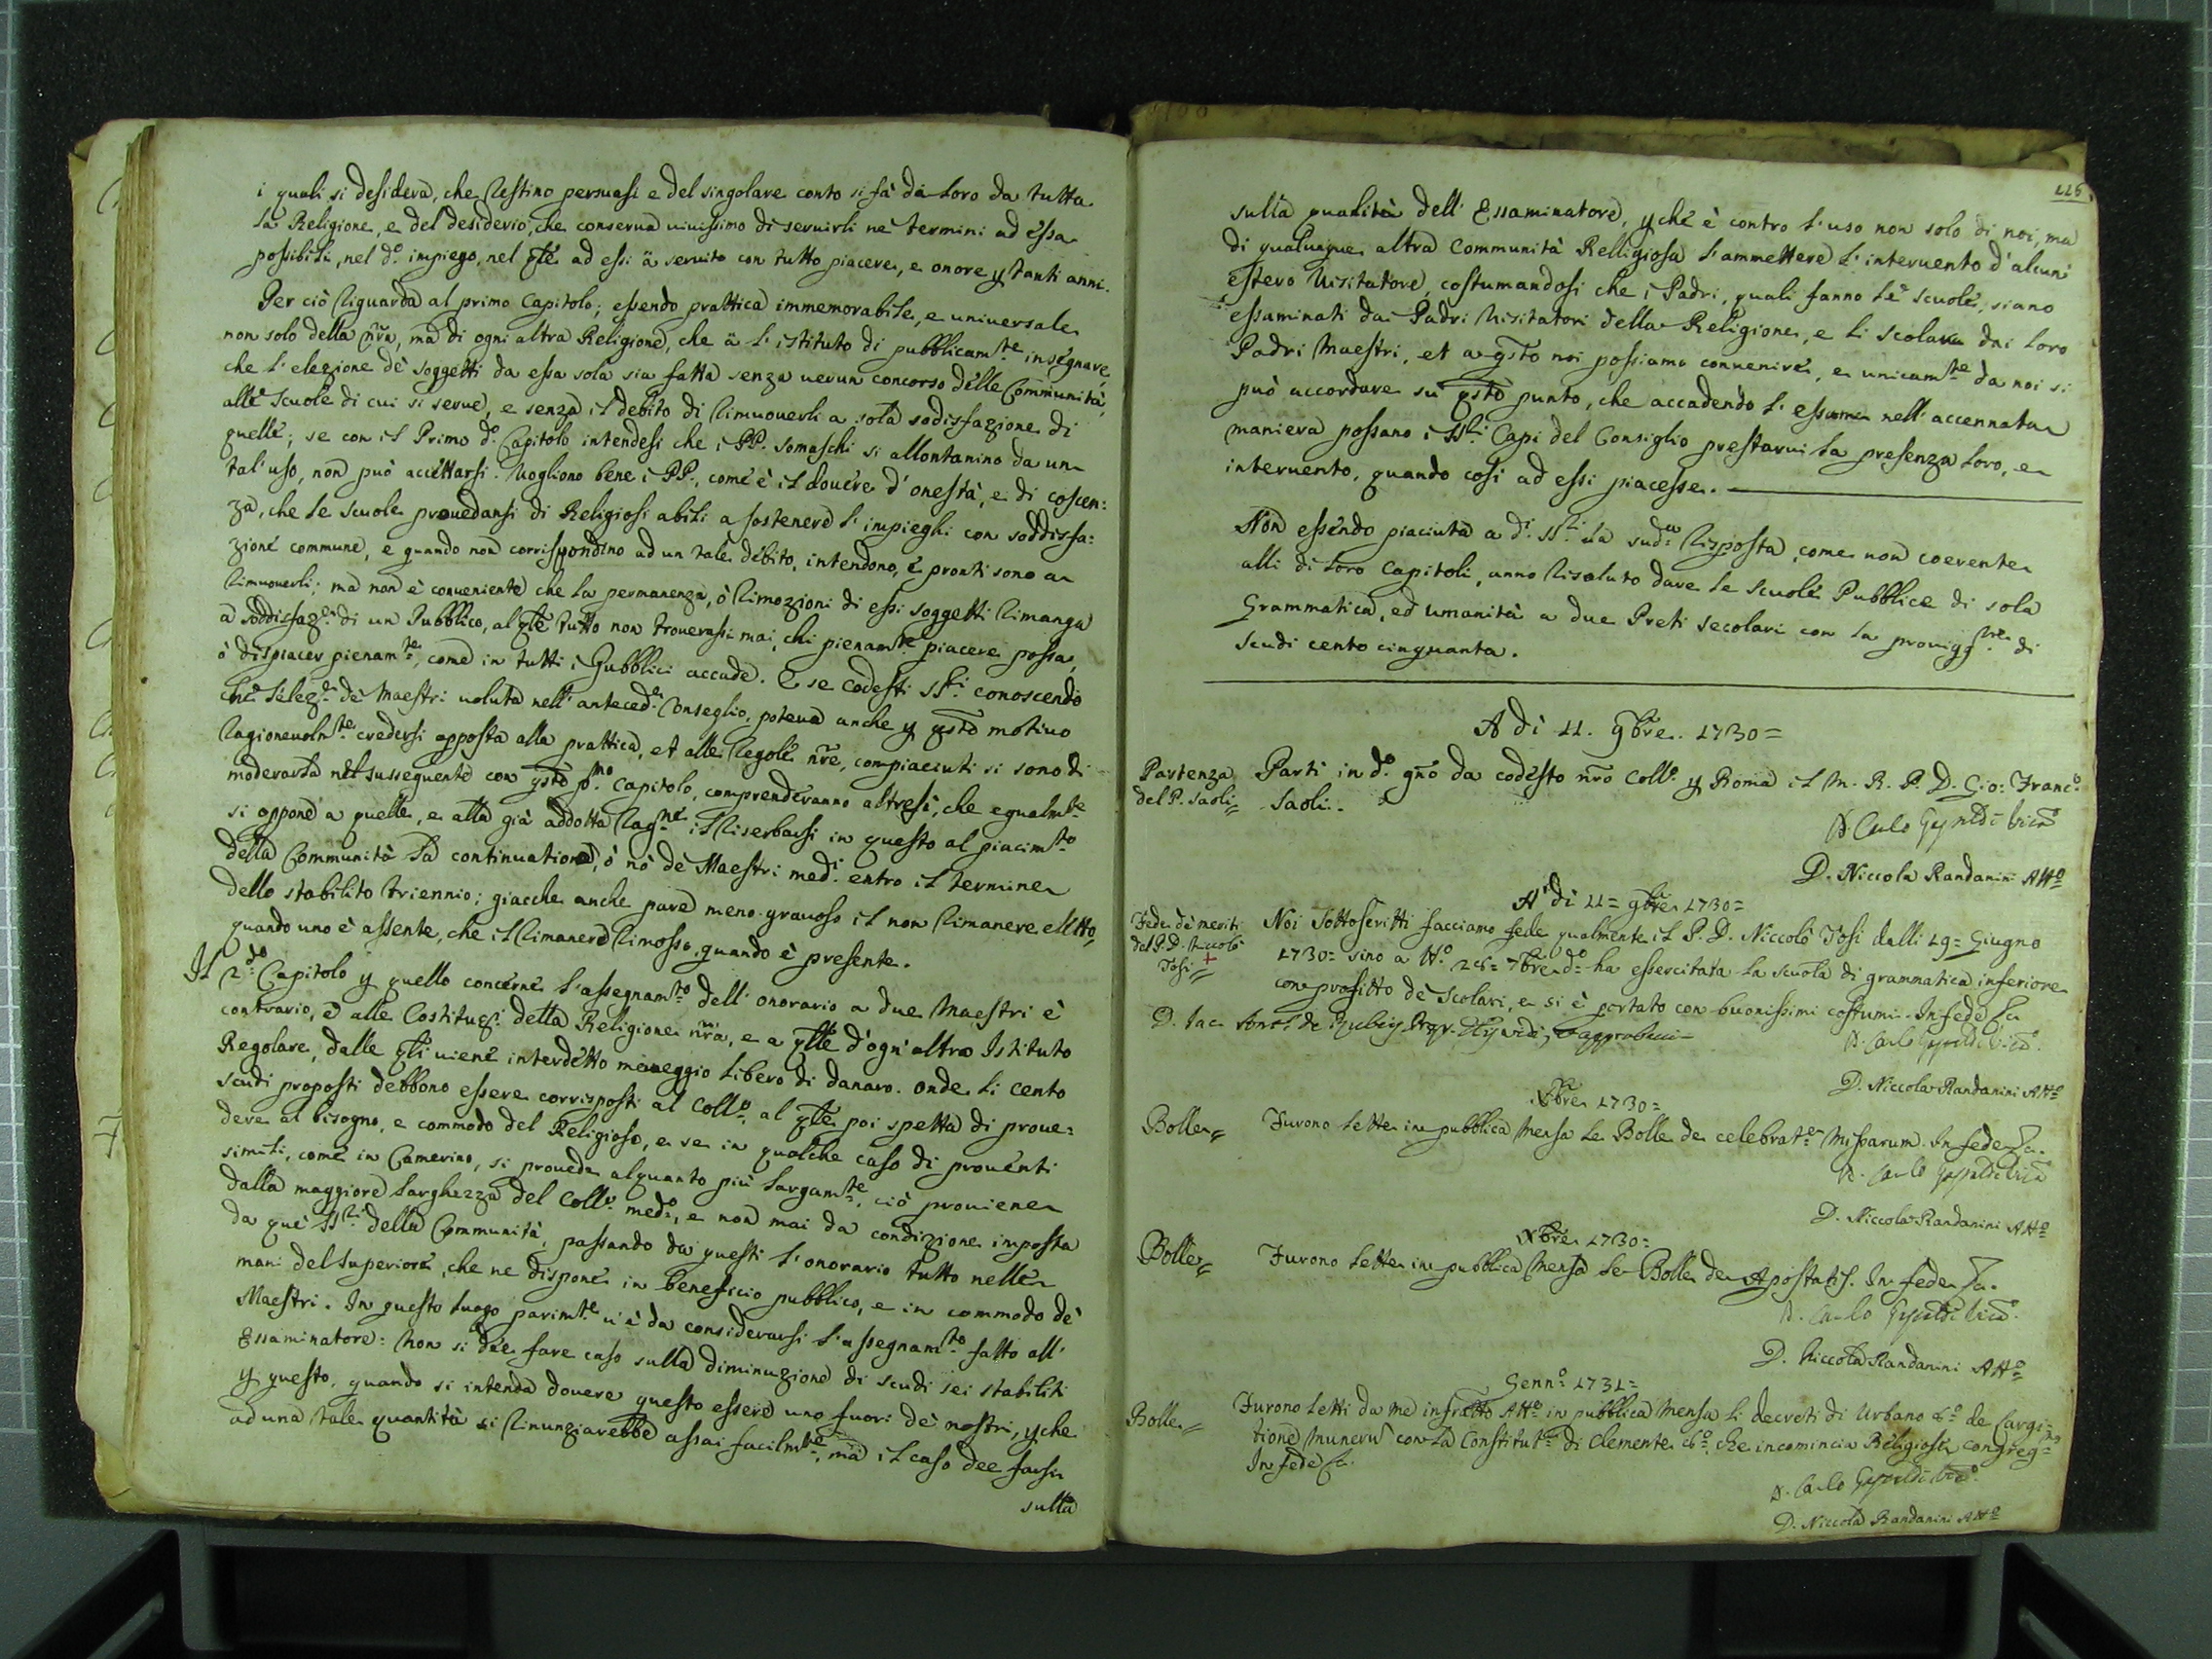 i quali si desidera, che restino persuasi e del singolare conto si fà da loro da tutta
la Religione, e del desiderio, che conserva vivissimo di servirli nè termini ad essa
possibili, nel d.o impiego, nel qle ad essi à servito con tutto piacere, e onore p tanti anni.
Per ciò riguarda al primo Capitolo; essendo prattica immemorabile, e universale
non solo della nra, mà di ogni altra Religione, che à l'istituto di pubblicam.te insegnare
che l'elezione dè soggetti da essa sola sia fatta senza verun concorso delle Communità,
alle scuole di cui si serve, e senza il debito di rimuoverli a sola sodisfazione di
quelle; se con il Primo d.o Capitolo intendesi che i PP. Somaschi si allontanino da un
tal'uso, non può accettarsi. Vogliono bene i PP., come è il dovere d'onestà, e di coscen:
za, che le scuole provedansi di Religiosi abili a sostenere l'impieghi con soddisfa:
zione commune, e quando non corrispondino ad un tale debito, intendono, e pronti sono a
rimuoverli; ma non è conveniente che la permanenza, ò rimozioni di essi soggetti rimanga
a soddisfaz.e di un Pubblico, al qle tutto non troverassi mai, chi pienam.te piacere possa,
ò dispiacer pienam.te, come in tutti i Pubblici accade. E se codesti SS.ri conoscendo
che l'elez.e dè Maestri voluta nell'anteced.e Conseglio, poteva anche p qsto motivo
ragionevolm.te credersi opposta alla prattica, et alle regole nre, compiaciuti si sono di
moderarla nel susseguente con qsto p.mo Capitolo, comprenderanno altresì, che egualm.te
si oppone a quelle, e alla già addotta rag.ne il riserbarsi in questo al piacim.to
della Communità la continuatione, ò nò dè Maestri med.i entro il termine
dello stabilito triennio; giacche anche pare meno gravoso il non rimanere eletto,
quando uno è assente, che il rimanere rimosso, quando è presente.
Il 2.do Capitolo p quello concerne l'assegnam.to dell'onorario a due Maestri è
contrario, e alle Costituz.i della Religione nra, e a qlle d'ogn'altro Istituto
Regolare, dalle qli viene interdetto maneggio libero di danaro. onde li cento
scudi proposti debbono essere corrisposti al Coll.o al qle poi spetta di prove:
dere al bisogno, e commodo del Religioso, e se in qualche caso di proventi
simili, come in Camerino, si provede alquanto più largam.te, ciò proviene
dalla maggiore larghezza del Coll.o med.o, e non mai da condizione imposta
da què SS.ri della Communità, passando da questi l'onorario tutto nelle
mani del Superiore, che ne dispone in beneficio pubblico, e in commodo dè
Maestri. In questo luogo parim.te v'è da considerarsi l'assegnam.to fatto all'
Essaminatore: Non si dee fare caso sulla diminuzione di scudi sei stabiliti
p questo, quando si intenda dovere questo essere uno fuori dè nostri, pche
ad una tale quantità si rinunziarebbe assai facilm.te, mà il caso dee farsi
sulla
116
sulla qualità dell'Essaminatore, pche è contro l'uso non solo di noi, ma
di qualunque altra Communità Religiosa l'ammettere l'intervento d'alcun
estero Visitatore, costumandosi che i Padri, quali fanno le scuole, siano
essaminati da Padri Visitatori della Religione, e li scolari dai loro
Padri Maestri, et a qsto noi possiamo convenire, e unicam.te da noi si
può accordare su qsto punto, che accadendo l'essame nell'accennata
maniera possano i SS.ri Capi del Consiglio prestarvi la presenza loro, e
intervento, quando così ad essi piacesse.
Non essendo piaciuta a d.i SS.ri la sud.a risposta, come non coerente
alli di loro Capitoli, anno risoluto dare le scuole Pubblice di sola
Grammatica, ed umanità a due Preti secolari con la provigg.ne di
scudi cento cinquanta.
A di 11. 9bre. 1730=
Partenza
del P. Saoli=
Parti in d.o gno da codesto nro Coll.o p Roma il M. R. P. D. Gio: Franc.o
Saoli.
D. Carlo
D. Niccola Randanini Att.o
A dì 11= 9bre 1730=
Fede dè meriti
del P. D. Niccolò
Tosi=
Noi sottoscritti facciamo fede qualmente il P. D. Niccolò Tosi dalli 19= Giugno
1730= sino a tt.o 26= 7bre d.o ha essercitata la scuola di grammatica inferiore
con profitto dè scolari, e si è portato con buonissimi costumi. In fede
D. Carlo
D. Niccola Randanini Att.o
Xbre 1730=
Bolle=
Furono lette in pubblica Mensa le Bolle de celebrat.e Missarum. In fede
D. Carlo
D. Niccola Randanini Att.o
Xbre 1730=
Bolle=
Furono lette in pubblica Mensa le Bolle de Apostatis. In fede
D. Carlo
D. Niccola Randanini Att.o
Genn.o 1731=
Bolle=
Furono letti da me infratto Att.o in pubblica Mensa li decreti di Urbano 8.o de largi=
tione Munerum con la Constitut.e di Clemente 8.o che incomincia Religiosæ congreg=
In fede
D. Carlo
D. Niccola Randanini Att.o